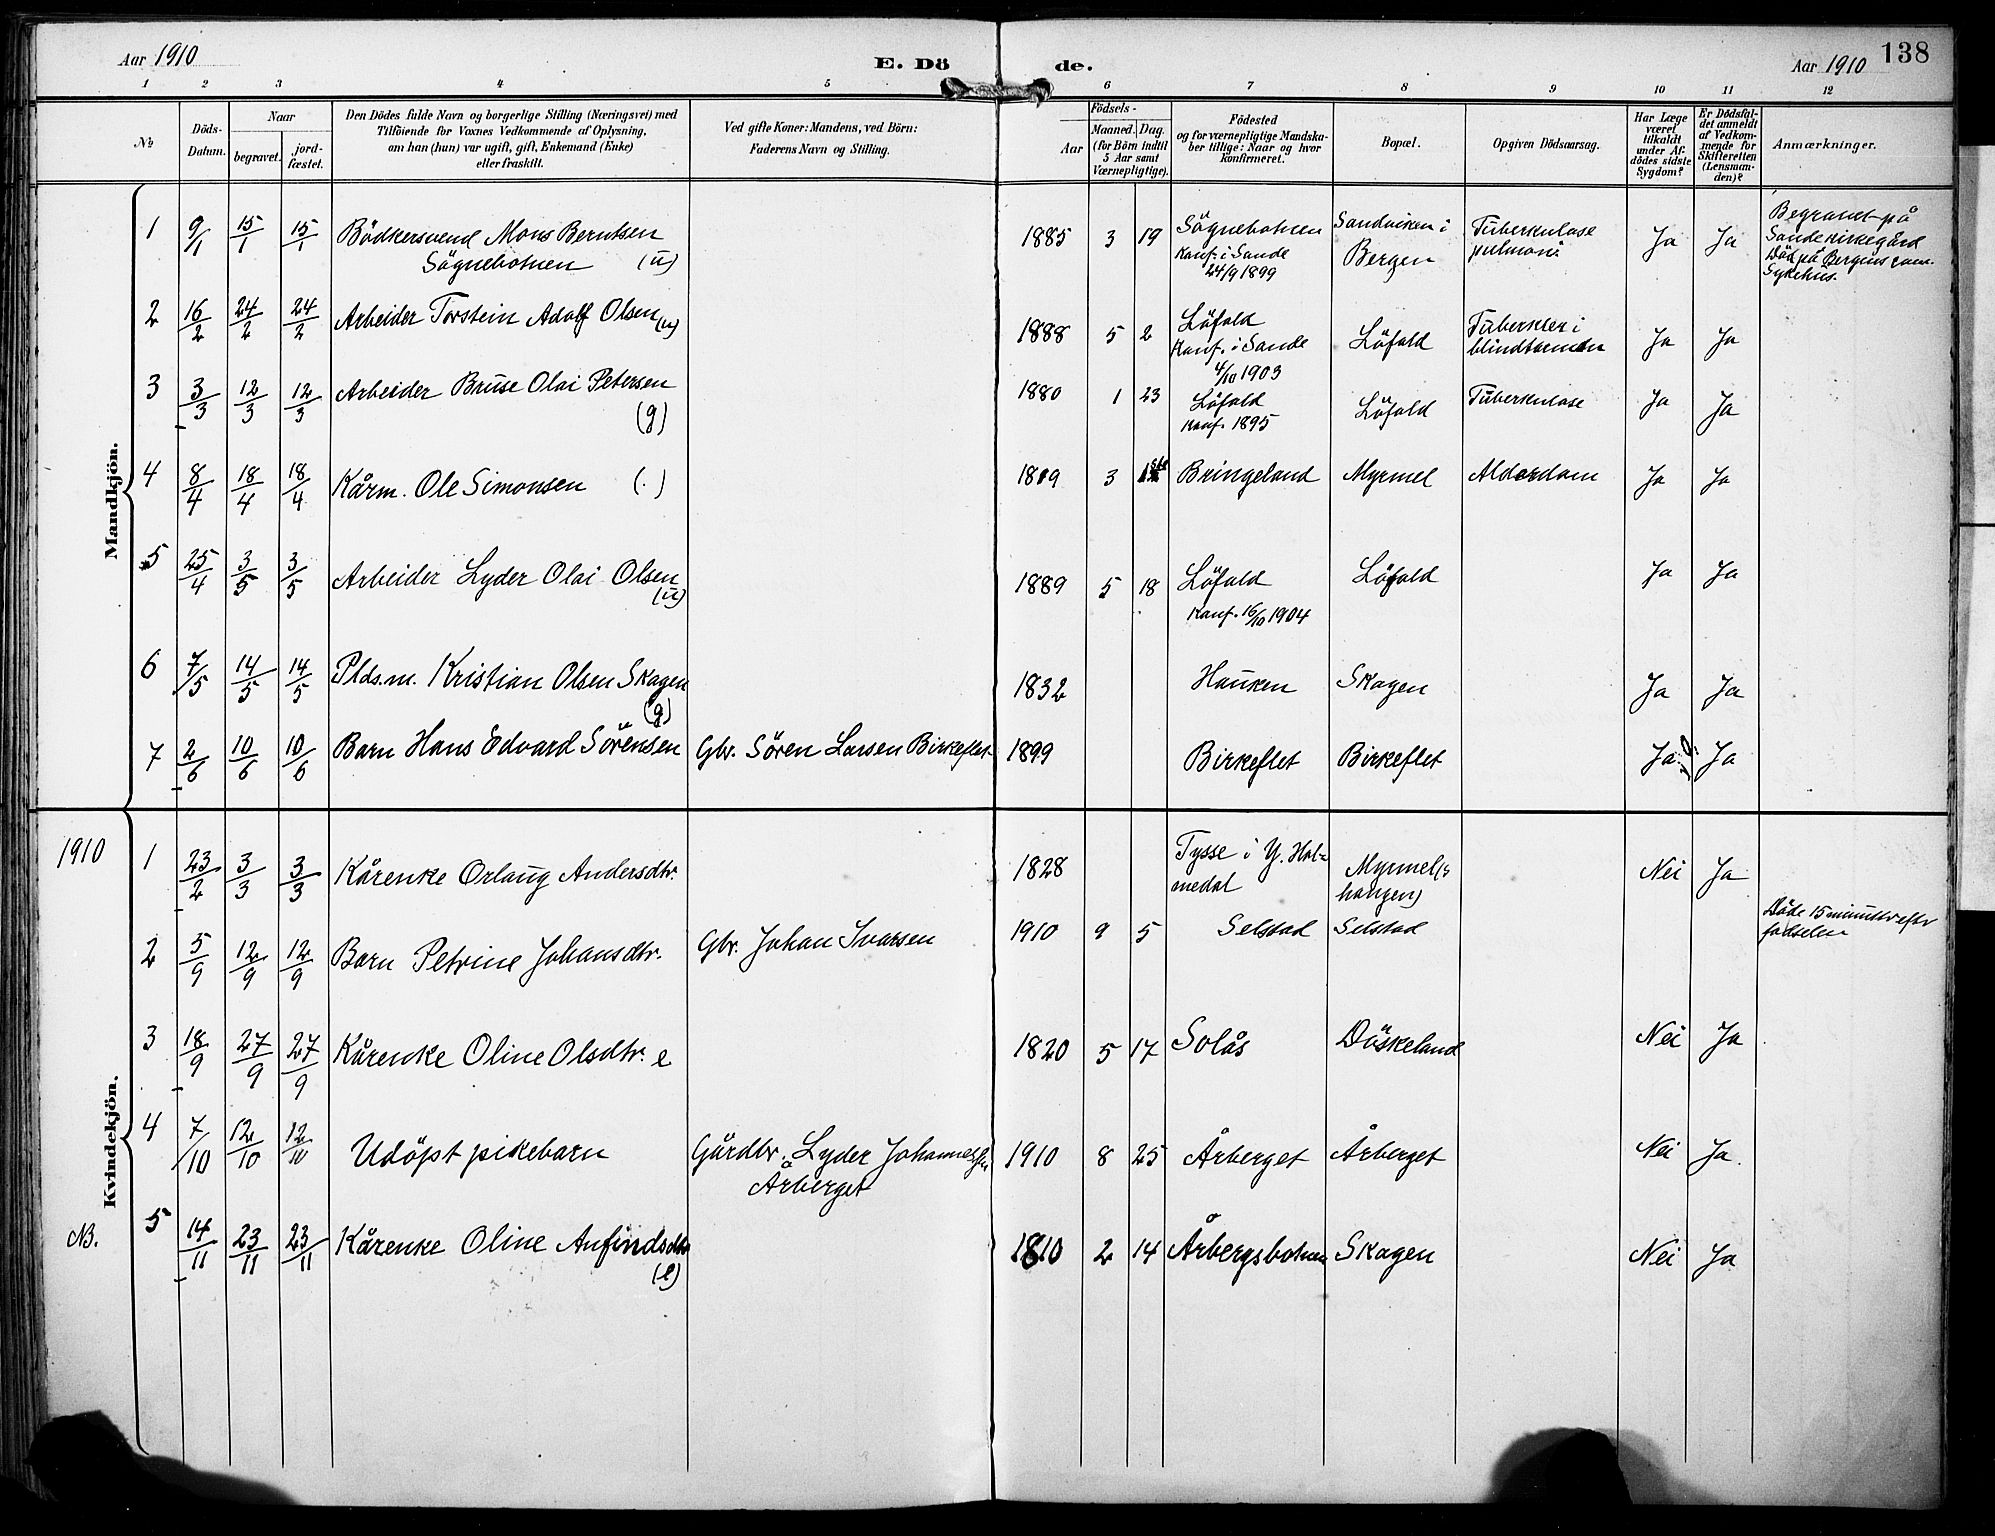 Aar 1910
E. Dö
de.
Aar 1910
138
1 2 3 4 5 6 7 8 9 10 11 12
№
Döds-
Datum.
Naar
begravet.
jord-
fæstet.
Den Dödes fulde Navn og borgerlige Stilling (Næringsvei) med
Tilföiende for Voxnes Vedkommende af Oplysning,
om han (hun) var ugift, gift, Enkemand (Enke)
eller fraskilt.
Ved gifte Koner: Mandens, ved Börn:
Faderens Navn og Stilling.
Födsels-
Aar
Maaned. Dag.
(for Börn indtil
5 Aar samt
Værnepligtige).
Födested
og for værnepligtige Mandska-
ber tillige: Naar og hvor
konfirmeret.
Bopæl.
Opgiven Dödsaarsag.
Har Læge
været
tilkaldt
under Af-
dödes sidste
Sygdom?
Er Dödsfal-
det anmeldt
af Vedkom-
mende for
Skifteretten
(Lensman-
den)?
Anmærkninger.
Mandkjön.
1 9/1 15/1 15/1 Bödkersvend Mons Berntsen
Sögnebotnen (u)
1885 3 19 Sögnebotnen
Konf. i Sande
24/9 1899
Sandviken i
Bergen
Tuberkulose
pulmon.
Ja Ja
Begravet på
Sande kirkegård
Död på Bergens
Sykehus.
2 16/2 24/2 24/2 Arbeider Torstein Adolf Olsen (u)
1888 5 2 Löfald
Konf. i Sande
4/10 1903
Löfald
Tuberkler i
blindtarmen
Ja Ja
3 3/3 12/3 12/3 Arbeider Bruse Olai Petersen
(g)
1880 1 23 Löfald
Konf. 1895
Löfald Tuberkulose Ja Ja
4 8/4 18/4 18/4 Kårm. Ole Simonsen (.)
1819 3 Bringeland Myrmel Alderdom Ja Ja
5 25/4 3/5 3/5 Arbeider Lyder Olai Olsen
(u)
1889 5 18 Löfald
Konf. 16/10 1904
Löfald Ja Ja
6 7/5 14/5 14/5 Plds.m. Kristian Olsen Skagen
(g)
1832 Hauken Skagen Ja Ja
7 2/6 10/6 10/6 Barn Hans Edvard Sörensen Gbr. Sören Larsen Birkeflet 1899 Birkeflet Birkeflet Ja Ja
1910
Kvindekjön.
1 23/2 3/3 3/3 Kårenke Orlaug Andersdtr.
1828 Tysse i Y. Hol-
medal
Myrmel(s
haugen)
Nei Ja
2 5/9 12/9 12/9 Barn Petrine Johansdtr. Gbr. Johan Ivarsen
1910 9 5 Selstad Selstad
Döde 15 minutter efter
fødselen
3 18/9 27/9 27/9 Kårenke Oline Olsdtr. e
1820 5 17 Solås Döskeland Nei Ja
4 7/10 12/10 12/10 Udöpt pikebarn Gårdbr. Lyder Johannessen
Årberget
1910 8 25 Årberget Årberget Nei Ja.
NB.
5 14/11 23/11 23/11 Kårenke Oline Anfindsdtr
(e)
1810 2 14 Årbergsbotnen Skagen Nei Ja